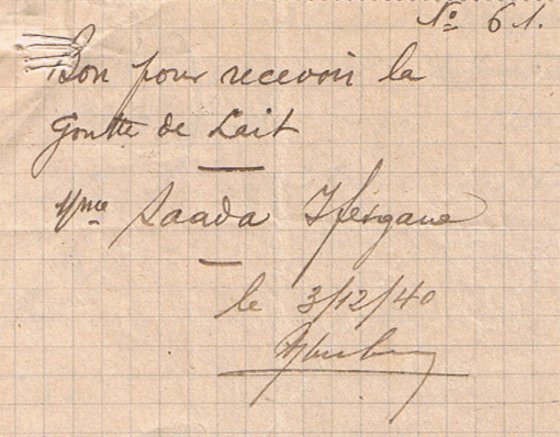 No 61.
Bon pour recevoir la
Goutte de Lait
Mme Saada Ifergane
le 3/12/40